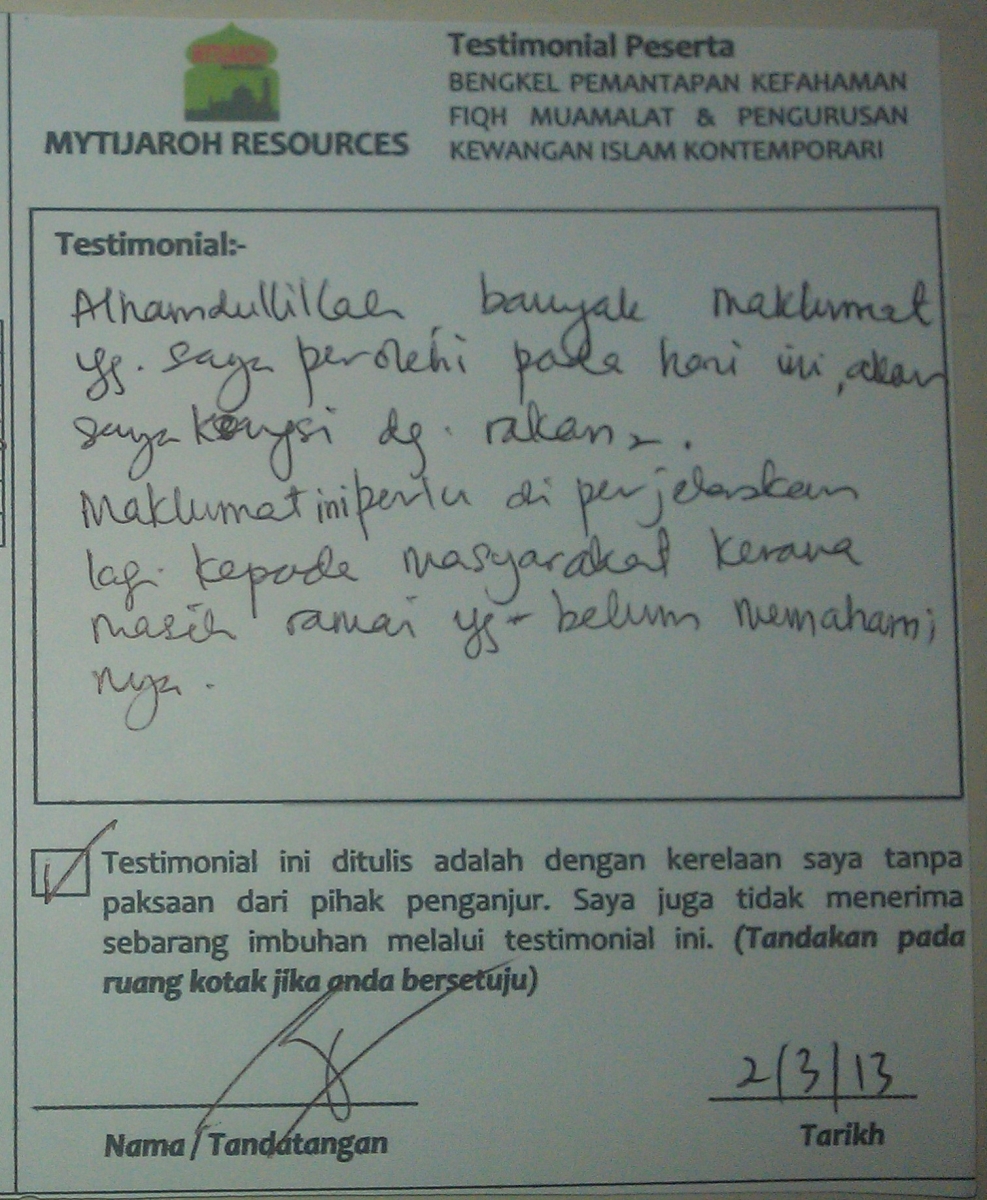 MYTIJAROH
MYTIJAROH RESOURCES
Testimonial Peserta
BENGKEL PEMANTAPAN KEFAHAMAN
FIQH MUAMALAT & PENGURUSAN
KEWANGAN ISLAM KONTEMPORARI
Testimonial:-
Alhamdullillah, banyak maklumat
yg. saya perolehi pada hari ini, akan
saya kongsi dg. rakan2.
Maklumat ini perlu di perjelaskan
lagi kepada masyarakat kerana
masih ramai yg belum memahami
nya.
Testimonial ini ditulis adalah dengan kerelaan saya tanpa
paksaan dari pihak penganjur. Saya juga tidak menerima
sebarang imbuhan melalui testimonial ini. (Tandakan pada
ruang kotak jika anda bersetuju)
2/3/13
Nama / Tandatangan
Tarikh